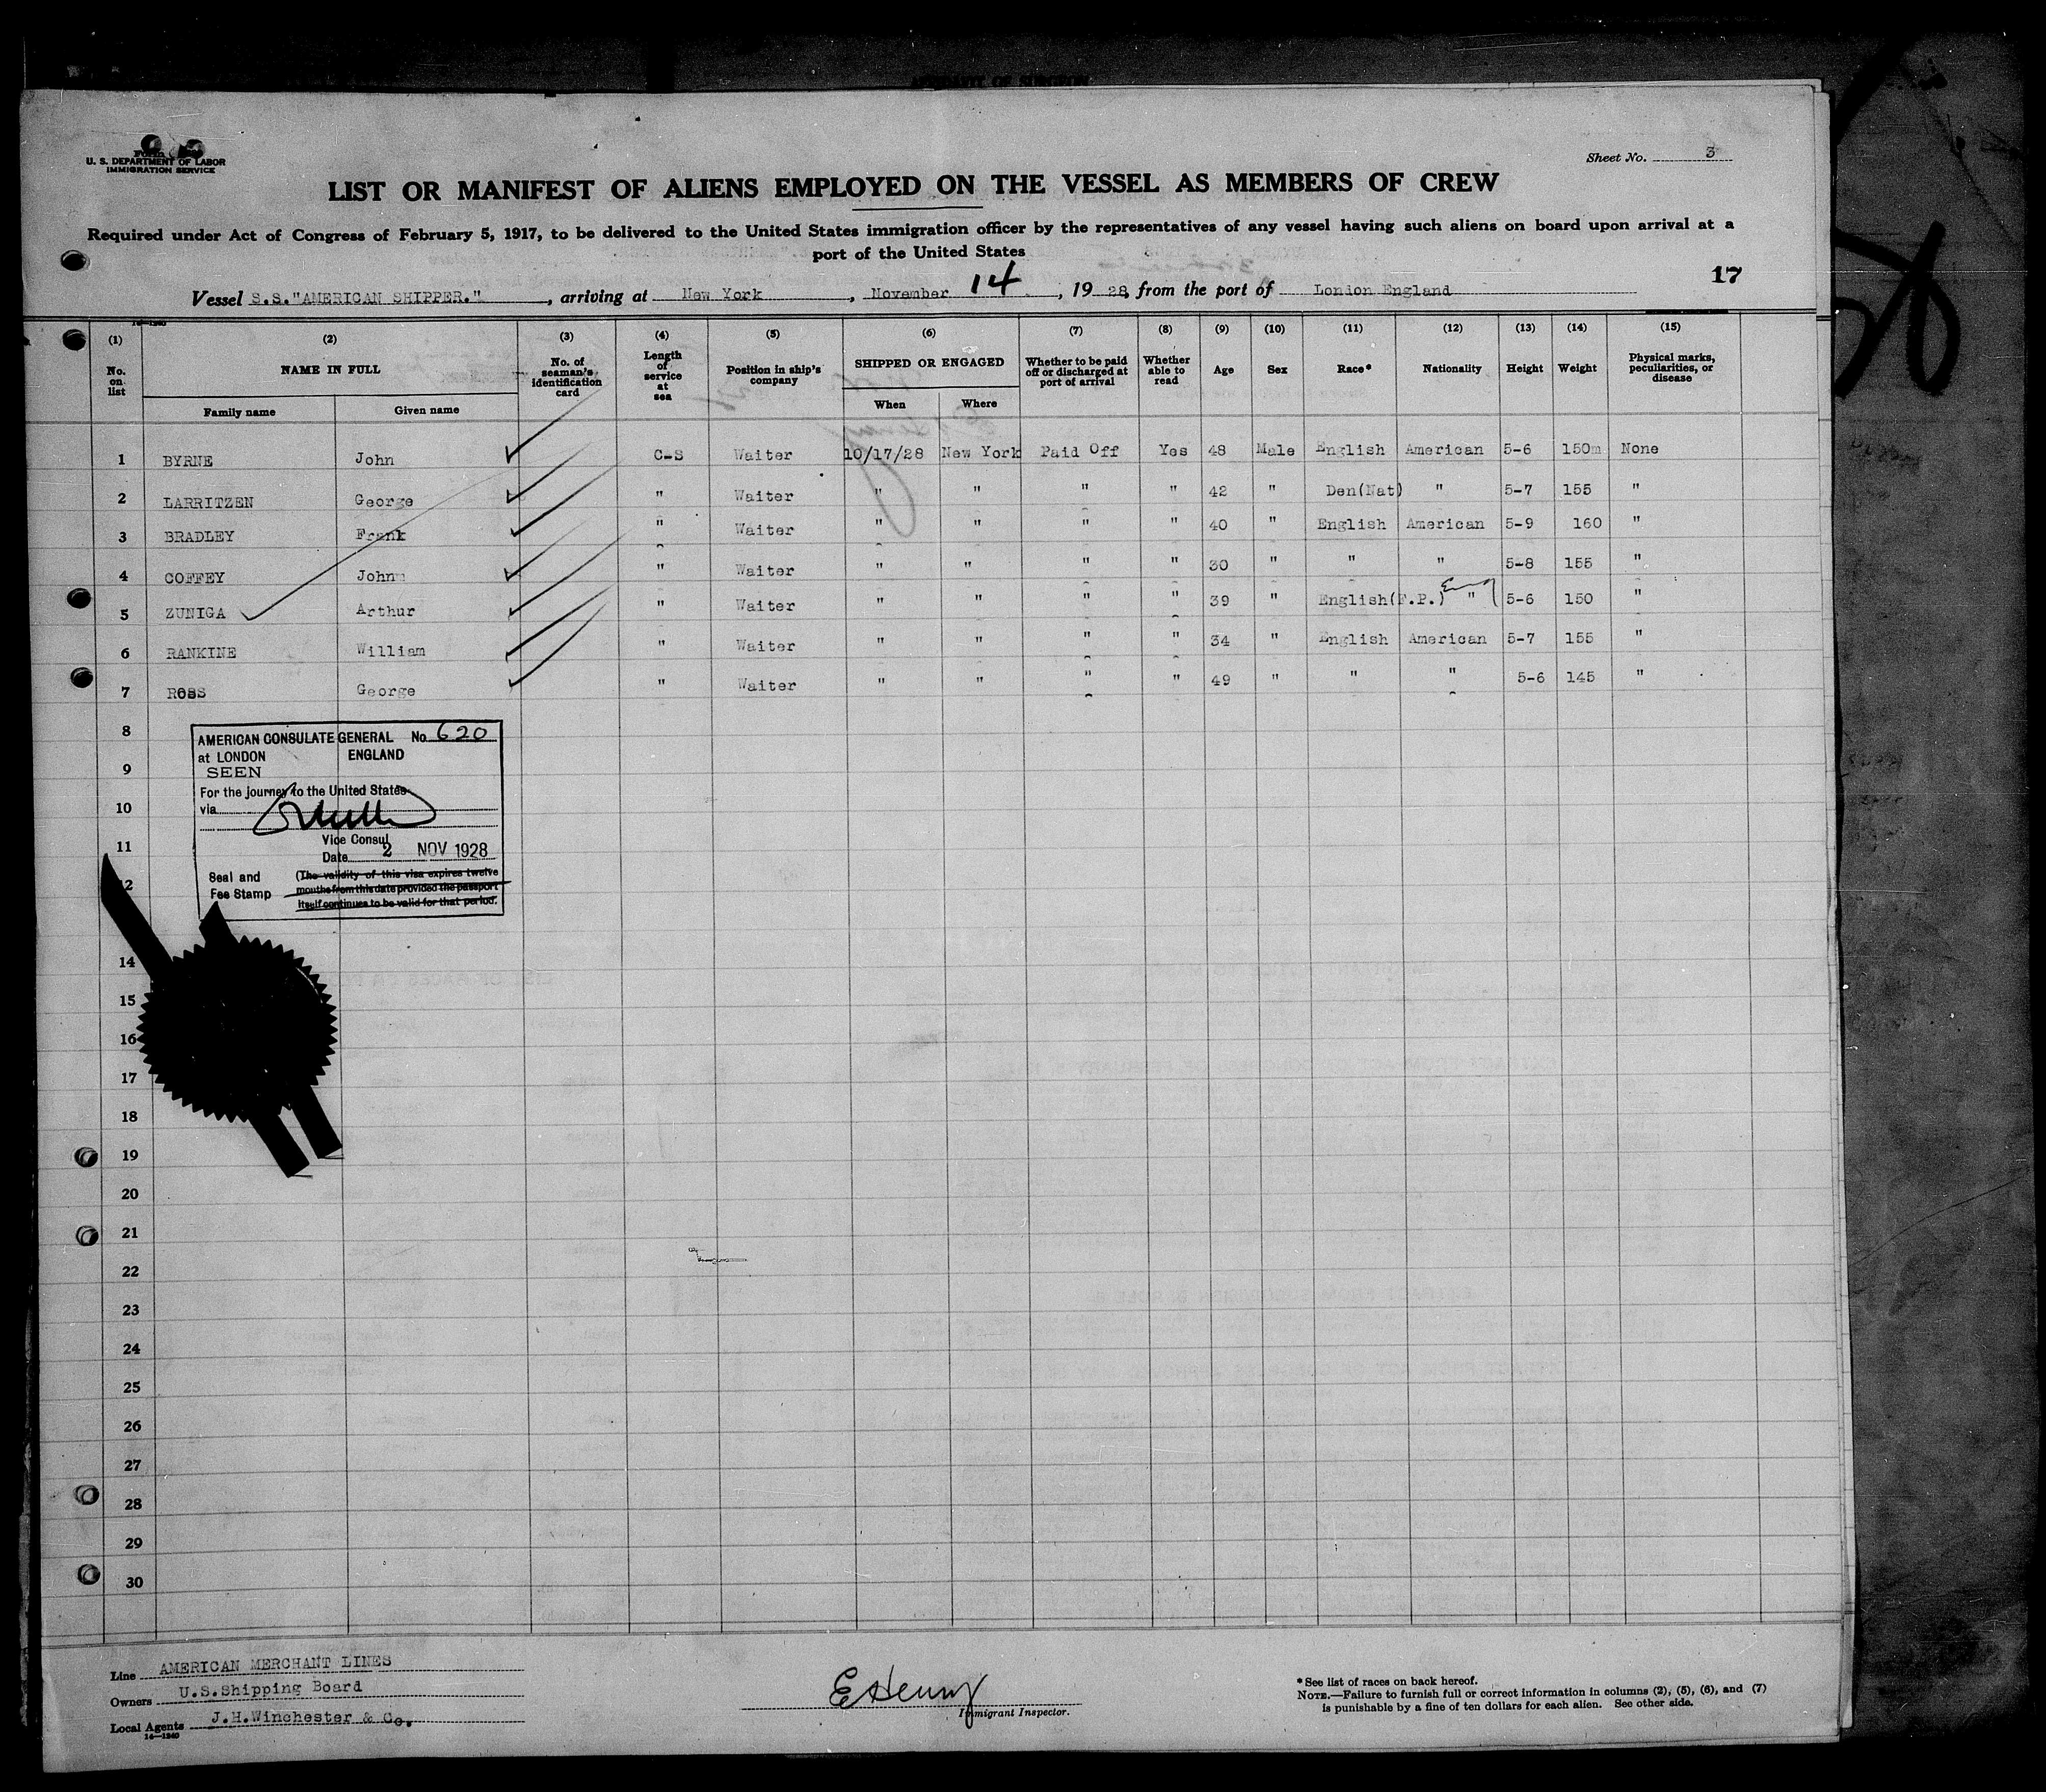 U. S. DEPARTMENT OF LABOR
IMMIGRATION SERVICE
Sheet No. 3
LIST OR MANIFEST OF ALIENS EMPLOYED ON THE VESSEL AS MEMBERS OF CREW
Required under Act of Congress of February 5, 1917, to be delivered to the United States immigration officer by the representatives of any vessel having such aliens on board upon arrival at a
port of the United States
17
Vessel S.S."AMERICAN SHIPPER." , arriving at New York , November 14 , 19 28, from the port of London England
(1) (2) (3) (4) (5) (6) (7) (8) (9) (10) (11) (12) (13) (14) (15)
No. on list NAME IN FULL No. of seaman's identification card Length of service at sea Position in ship's company SHIPPED OR ENGAGED Whether to be paid off or discharged at port of arrival Whether able to read Age Sex Race* Nationality Height Weight Physical marks, peculiarities, or disease
Family name Given name When Where
1 BYRNE John C-S Waiter 10/17/28 New York Paid Off Yes 48 Male English American 5-6 150m None
2 LARRITZEN George " Waiter " " " " 42 " Den(Nat) " 5-7 155 "
3 BRADLEY Frank " Waiter " " " " 40 " English American 5-9 160 "
4 COFFEY John " Waiter " " " " 30 " " " 5-8 155 "
5 ZUNIGA Arthur " Waiter " " " " 39 " English(F.P.) " Eng 5-6 150 "
6 RANKINE William " Waiter " " " " 34 " English American 5-7 155 "
7 ROSS George " Waiter " " " " 49 " " " 5-6 145 "
8
9
10
11
12
14
15
16
17
18
19
20
21
22
23
24
25
26
27
28
29
30
AMERICAN CONSULATE GENERAL No. 620
at LONDON ENGLAND
SEEN
For the journey to the United States
via
Vice Consul
Date 2 NOV 1928
Seal and Fee Stamp
(The validity of this visa expires twelve
months from this date provided the passport
itself continues to be valid for that period.
Line AMERICAN MERCHANT LINES
Owners U.S.Shipping Board
Local Agents J.H.Winchester & Co.
14—1240
E Henry
Immigrant Inspector.
*See list of races on back hereof.
NOTE.—Failure to furnish full or correct information in columns (2), (5), (6), and (7)
is punishable by a fine of ten dollars for each alien. See other side.